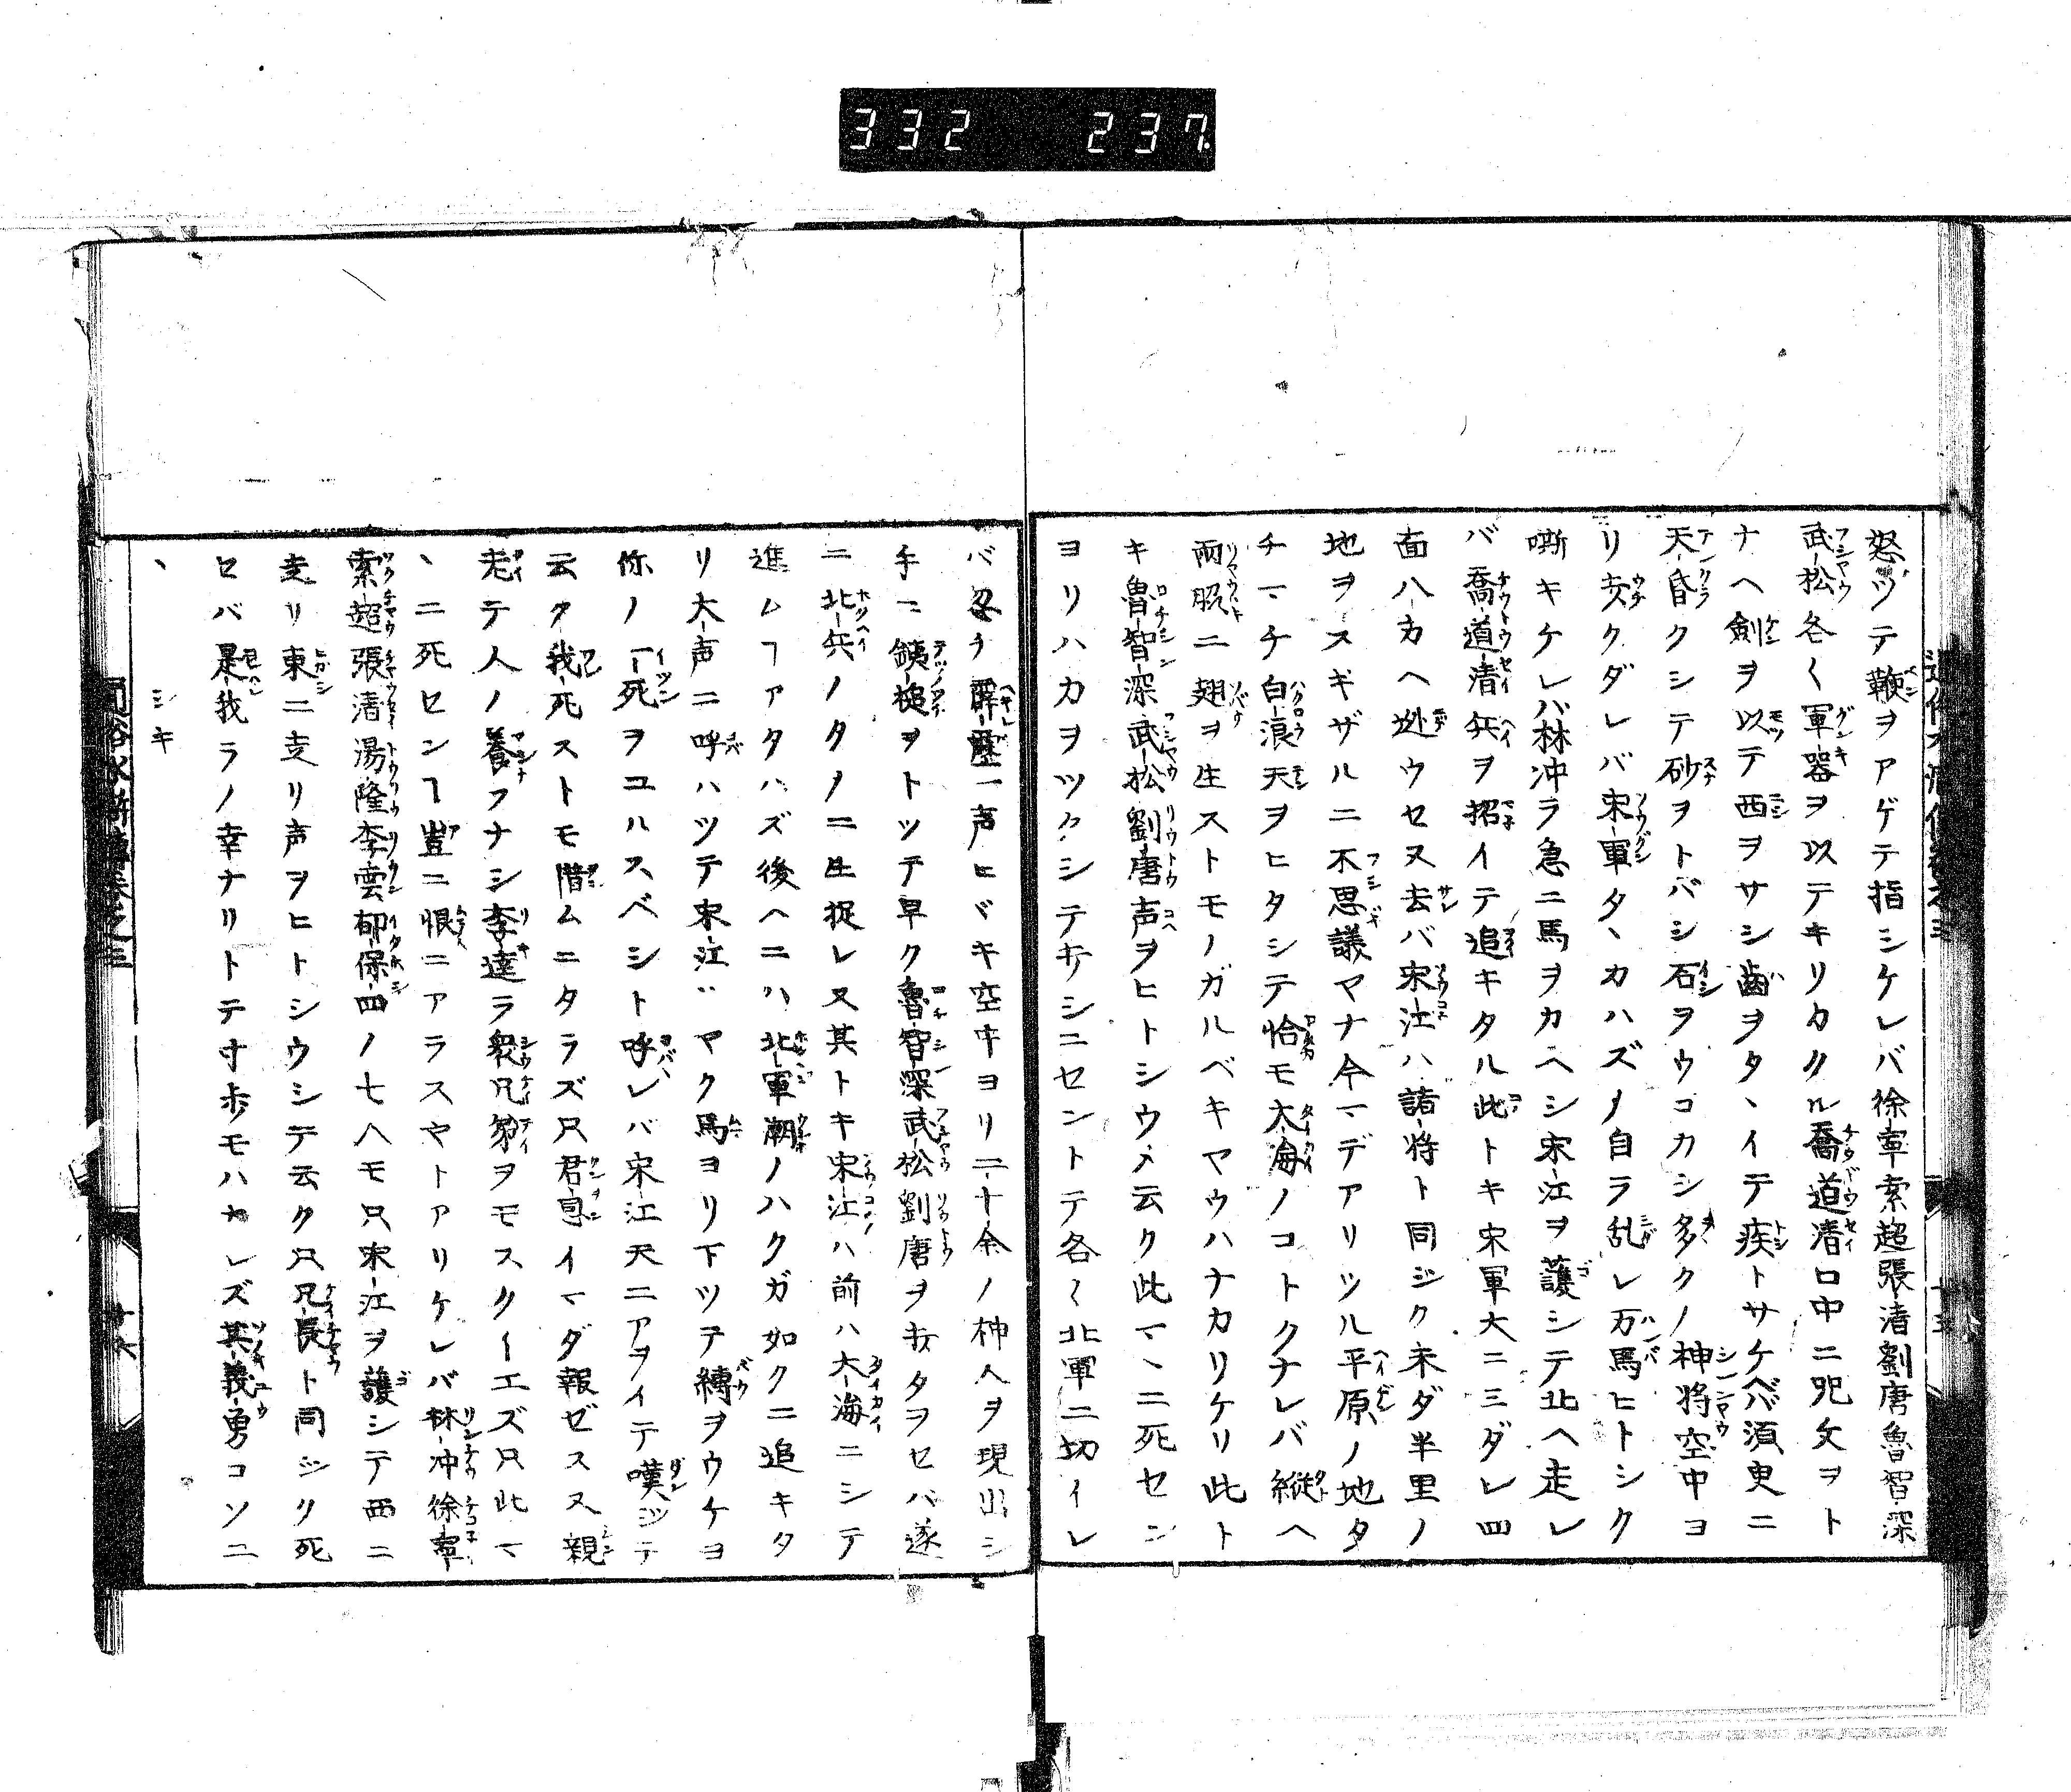 332 237
怒ツテ鞭ヲアゲテ指シケレバ徐寧索超張清劉唐魯智深
武松各〱軍器ヲ以テキリカクル喬道清口中ニ咒文ヲト
ナヘ剣ヲ以テ西ヲサシ歯ヲタヽイテ疾トサケベバ須臾ニ
天昏クシテ砂ヲトバシ石ヲウコカシ多クノ神将空中ヨ
リ突クダレバ宋軍タヽカハズノ自ラ乱レ万馬ヒトシク
嘶キケレバ林冲ラ急ニ馬ヲカヘシ宋江ヲ護シテ北ヘ走レ
バ喬道清兵ヲ招イテ追キタル此トキ宋軍大ニ三ダレ四
面八方ヘ逃ウセヌ去バ宋江ハ諸将ト同ジク未ダ半里ノ
地ヲスギザルニ不思議ヤナ今マデアリツル平原ノ地タ
チマチ白浪天ヲヒタシテ恰モ大海ノコトクナレバ縦ヘ
両脇ニ翅ヲ生ストモノガルベキヤウハナカリケリ此ト
キ魯智深武松劉唐声ヲヒトシウメ云ク此マヽニ死セン
ヨリハカヲツクシテ討シニセントテ各〱北軍ニ切イレ
バ忽チ霹靂一声ヒヾキ空中ヨリ二十余ノ神人ヲ現出シ
手ニ鉄槌ヲトツテ早ク魯智深武松劉唐ヲ打タヲセバ遂
ニ北兵ノタメニ生捉レ又其トキ宋江ハ前ハ大海ニシテ
進ムヿアタハズ後ヘニハ北軍潮ノハクガ如クニ追キタ
リ大声ニ呼ハツテ宋江ハヤク馬ヨリ下ツテ縛ヲウケヨ
你ノ一死ヲユルスベシト呼レバ宋江天ニアヲイテ嘆ジテ
云ク我死ストモ惜ムニタラズ只君恩イマダ報ゼスス親
老テ人ノ養フナシ李逵ラ衆兄弟ヲモスクイエズ只此マ
ヽニ死センヿ豈ニ恨ニアラスヤトアリケレバ林冲徐寧
索超張清湯隆李雲郁保四ノ七人モ只宋江ヲ護シテ西ニ
走リ東ニ走リ声ヲヒトシウシテ云ク只兄長ト同ジク死
セバ是我ラノ幸ナリトテ寸歩モハナレズ其義勇コソニ
ヽシキ
通俗水滸傳巻之三